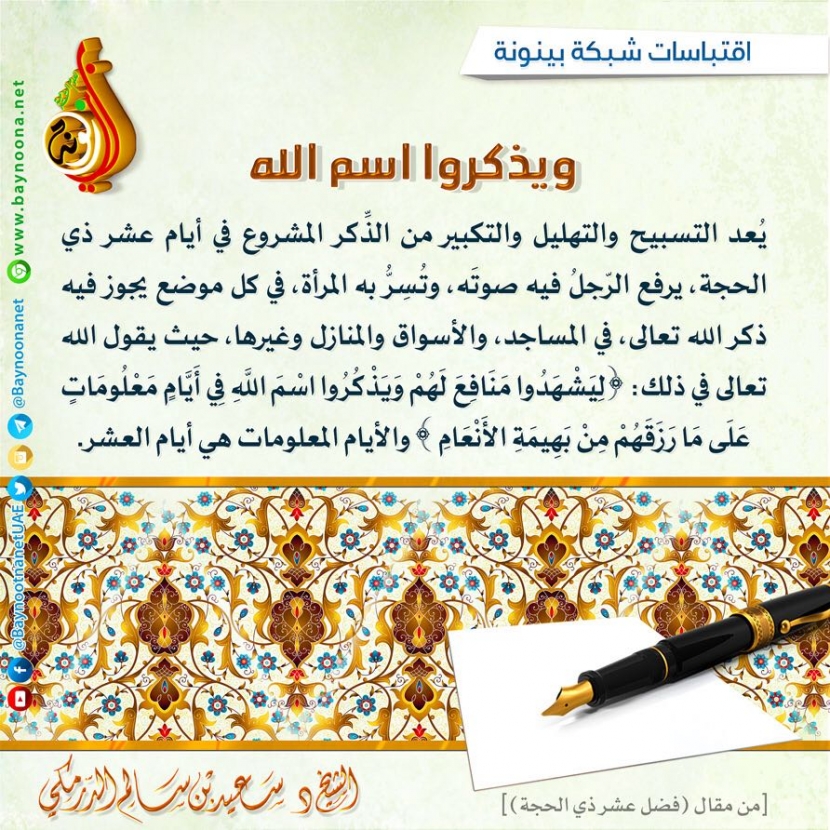 اقتباسات شبكة بينونة
ويذكروا اسم الله
يُعد التسبيح والتهليل والتكبير من الذِّكر المشروع في أيام عشر ذي
الحجة، يرفع الرّجلُ فيه صوتَه، وتُسِرُّ به المرأة، في كل موضع يجوز فيه
ذكر الله تعالى، في المساجد، والأسواق والمنازل وغيرها، حيث يقول الله
تعالى في ذلك: ﴿لِيَشْهَدُوا مَنَافِعَ لَهُمْ وَيَذْكُرُوا اسْمَ اللَّهِ فِي أَيَّامٍ مَعْلُومَاتٍ
عَلَى مَا رَزَقَهُمْ مِنْ بَهِيمَةِ الأَنْعَامِ ﴾ والأيام المعلومات هي أيام العشر.
www.baynoona.net
@Baynoonanet
@BaynootnanetUAE
الشيخ د سعيد بن سالم الدرمكي
[من مقال (فضل عشر ذي الحجة)]